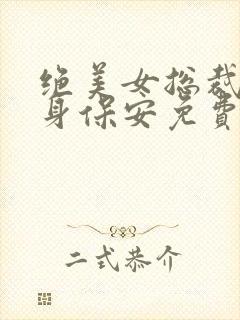 绝美女总裁
身保安免費
二式恭介